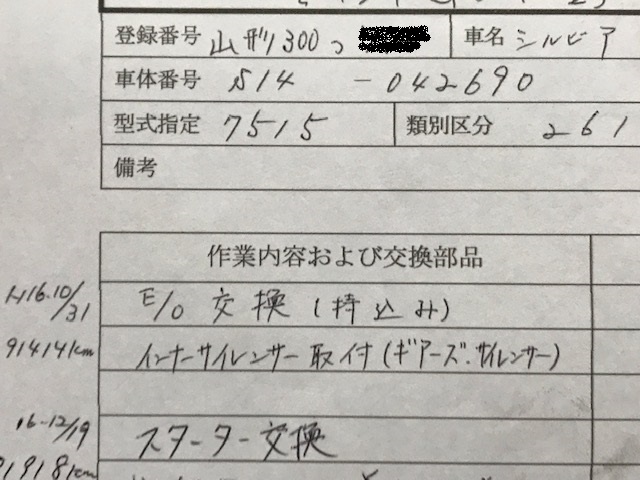 登録番号 山形300つ 車名 シルビア
車体番号 S14 -042690
型式指定 7515 類別区分 261
備考
作業内容および交換部品
H16.10/31 E/O 交換(持込み)
91414km インナーサイレンサー取付(ギアーズ・サイレンサー)
16-12/19 スターター交換
91918km